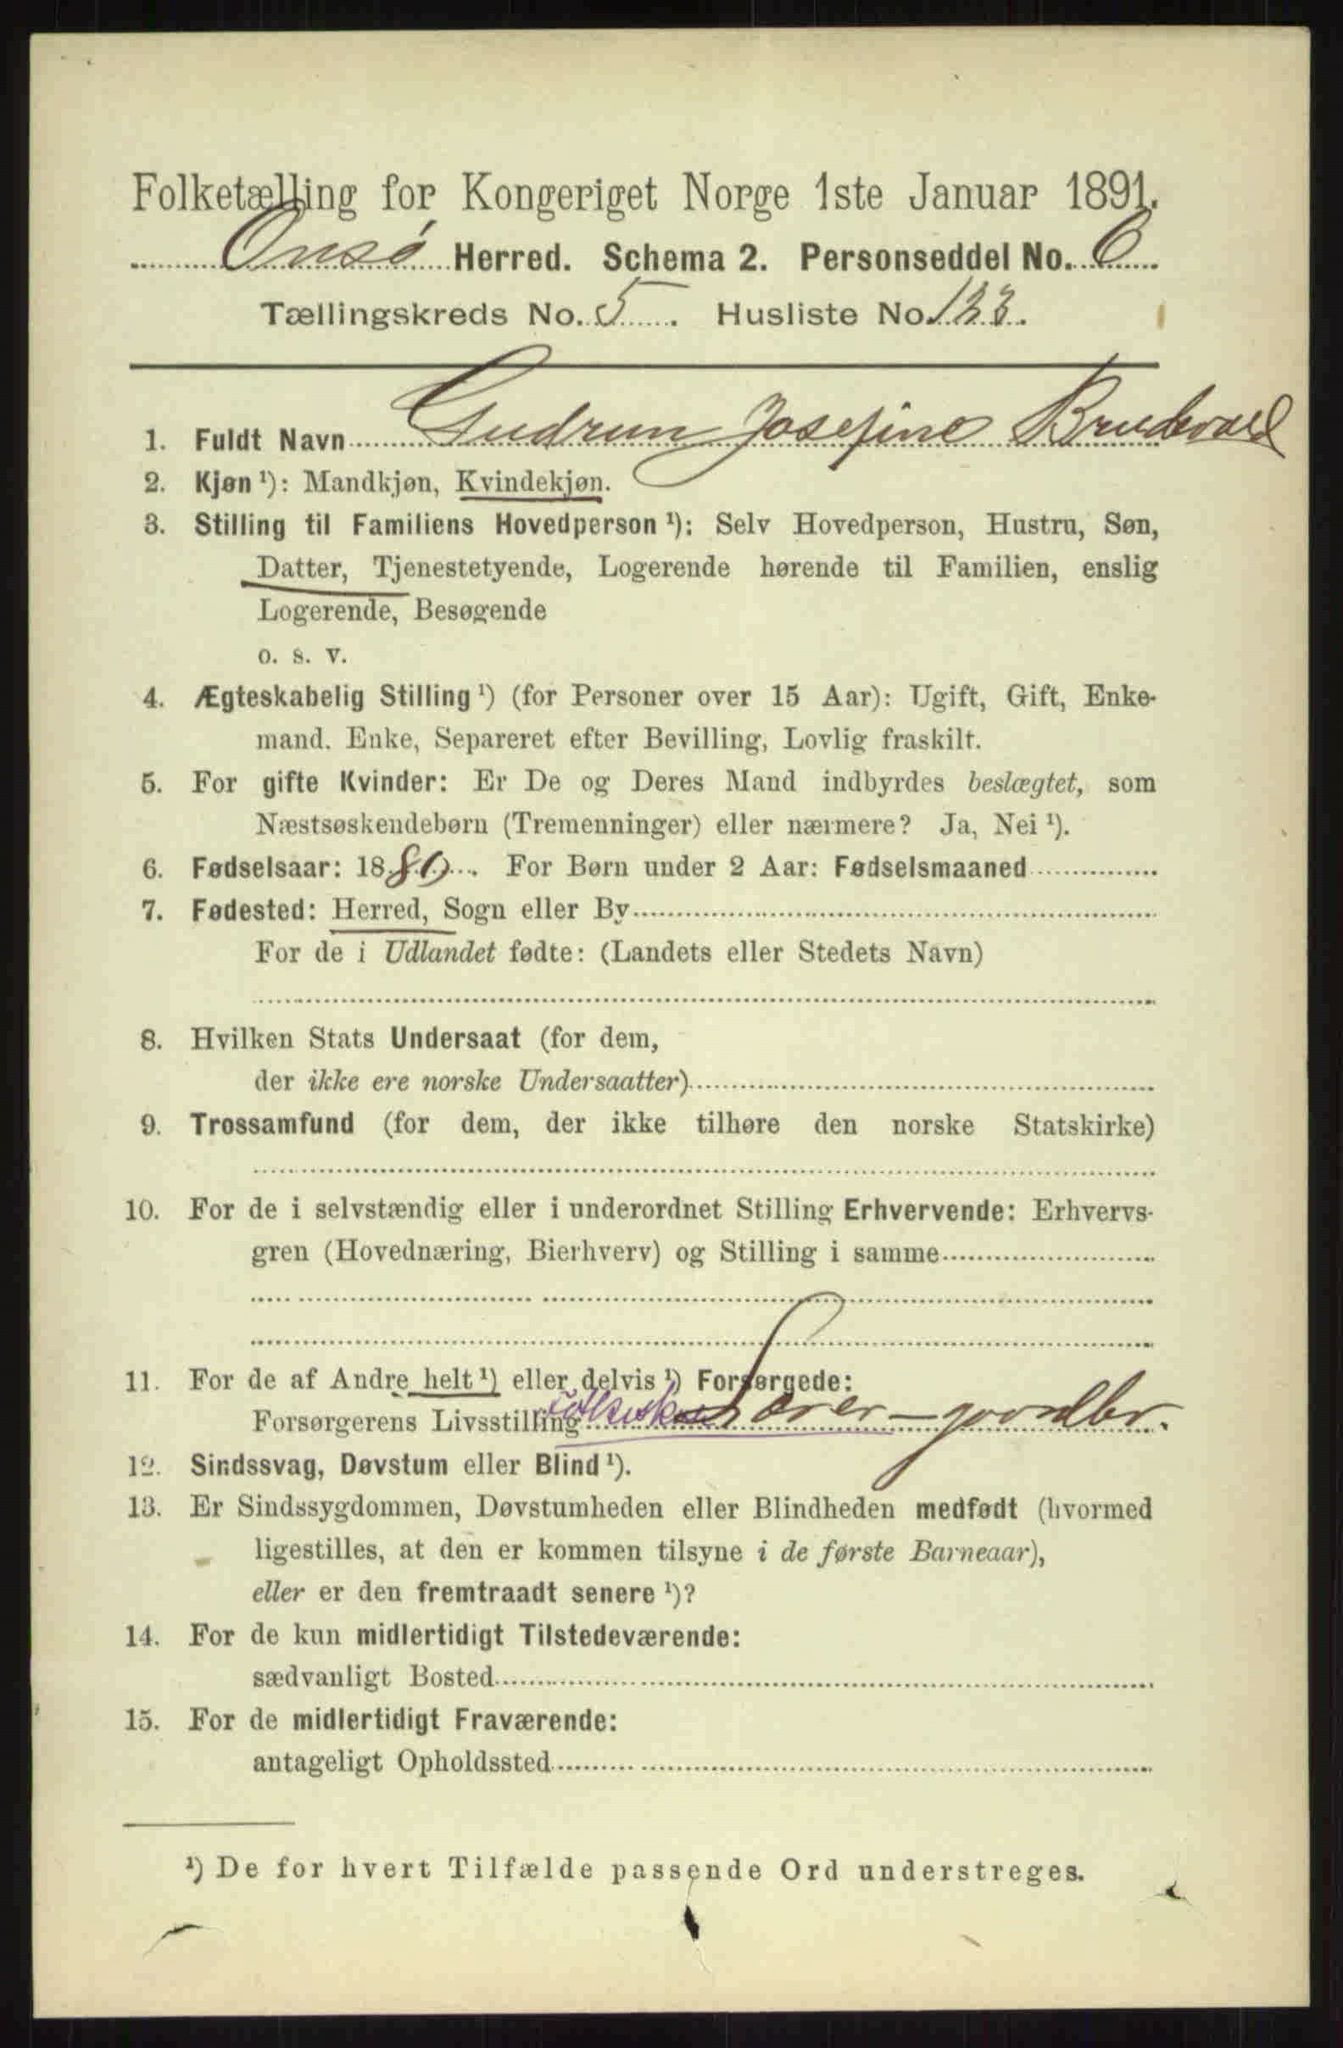 Folketælling for Kongeriget Norge 1ste Januar 1891.
Onsø Herred. Schema 2. Personseddel No. 6
Tællingskreds No. 5. Husliste No. 133.
1. Fuldt Navn Gudrun Josefine Brudevold
2. Kjøn ¹): Mandkjøn, Kvindekjøn.
3. Stilling til Familiens Hovedperson ¹): Selv Hovedperson, Hustru, Søn,
Datter, Tjenestetyende, Logerende hørende til Familien, enslig
Logerende, Besøgende
o. s. v.
4. Ægteskabelig Stilling ¹) (for Personer over 15 Aar): Ugift, Gift, Enke-
mand. Enke, Separeret efter Bevilling, Lovlig fraskilt.
5. For gifte Kvinder: Er De og Deres Mand indbyrdes beslægtet, som
Næstsøskendebørn (Tremenninger) eller nærmere? Ja, Nei ¹).
6. Fødselsaar: 1889. For Børn under 2 Aar: Fødselsmaaned
7. Fødested: Herred, Sogn eller By
For de i Udlandet fødte: (Landets eller Stedets Navn)
8. Hvilken Stats Undersaat (for dem,
der ikke ere norske Undersaatter)
9. Trossamfund (for dem, der ikke tilhøre den norske Statskirke)
10. For de i selvstændig eller i underordnet Stilling Erhvervende: Erhvervs-
gren (Hovednæring, Bierhverv) og Stilling i samme
11. For de af Andre helt ¹) eller delvis ¹) Forsørgede:
Forsørgerens Livsstilling Folkesk. Lærer - gaardbr.
12. Sindssvag, Døvstum eller Blind ¹).
13. Er Sindssygdommen, Døvstumheden eller Blindheden medfødt (hvormed
ligestilles, at den er kommen tilsyne i de første Barneaar),
eller er den fremtraadt senere ¹)?
14. For de kun midlertidigt Tilstedeværende:
sædvanligt Bosted
15. For de midlertidigt Fraværende:
antageligt Opholdssted
¹) De for hvert Tilfælde passende Ord understreges.